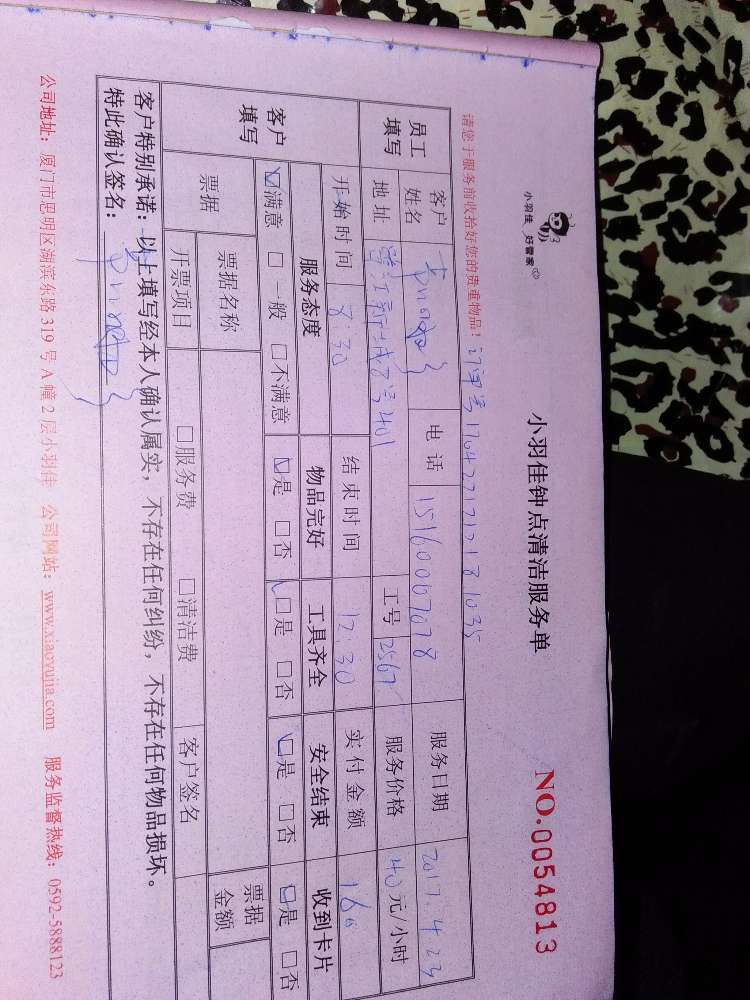 小羽佳 好管家
小羽佳钟点清洁服务单
NO.0054813
请您于服务前收拾好您的贵重物品！订单号
员工填写
客户姓名
电话 15160007078
服务日期 2017.4.23
地址 401
工号 2567
服务价格 40元/小时
开始时间 8:30
结束时间 12:30
实付金额 160
客户填写
服务态度 物品完好 工具齐全 安全结束 收到卡片
☑满意 □一般 □不满意 ☑是 □否 ☑是 □否 ☑是 □否 ☑是 □否
票据 票据名称 票据金额
开票项目 □服务费 □清洁费 客户签名
客户特别承诺：以上填写经本人确认属实，不存在任何纠纷，不存在任何物品损坏。
特此确认签名：
公司地址：厦门市思明区湖滨东路319号A幢2层小羽佳 公司网站：www.xiaoyujia.com 服务监督热线：0592-5888123